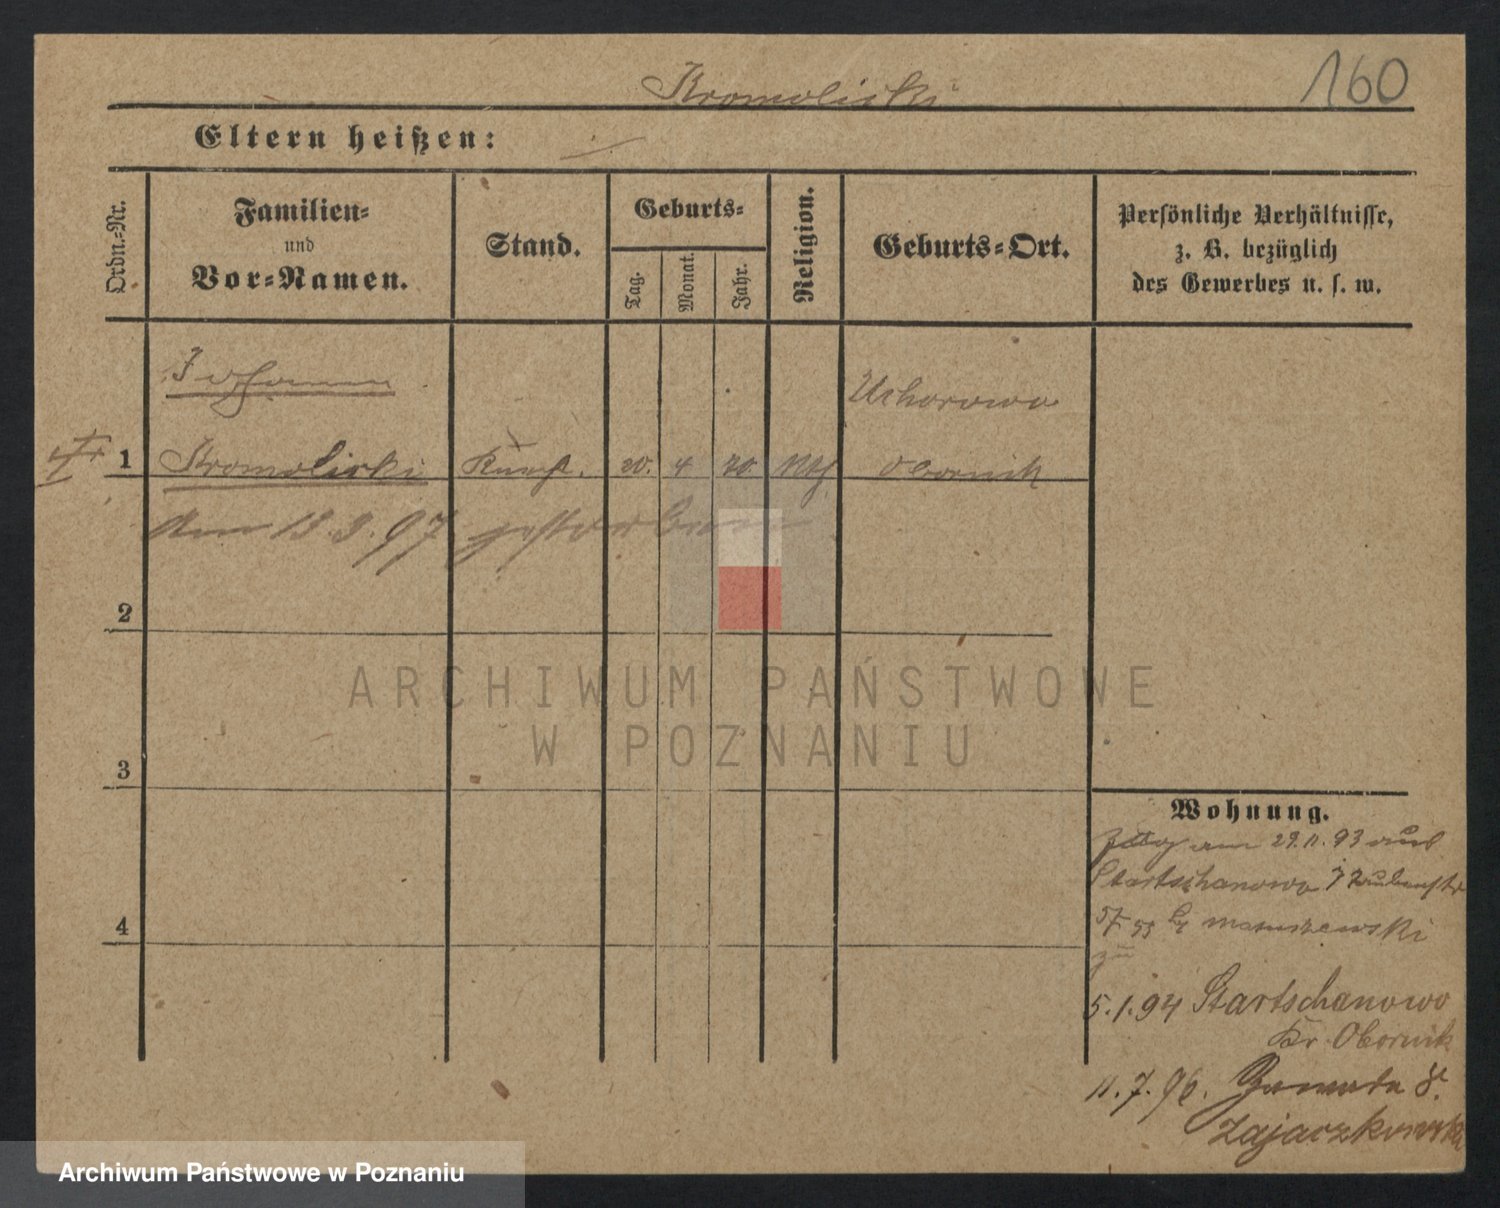 Kromolicki
160
Eltern heißen:
Ordn.-Nr.
Familien-
und
Vor-Namen.
Stand.
Geburts-
Tag.
Monat.
Jahr.
Religion.
Geburts-Ort.
Persönliche Verhältnisse,
z. B. bezüglich
des Gewerbes u. s. w.
Johann
Ucharowo
1 Kromolicki 20. 4 70 Obornik
Am 13.3.97 gestorben
2
3
4
Wohnung.
am 29.11.93 aus
Startschanowo
57 55
zu
5.1.94 Startschanowo
Kr. Obornik
11.7.96.
Zajaczkowski
ARCHIWUM PAŃSTWOWE
W POZNANIU
Archiwum Państwowe w Poznaniu